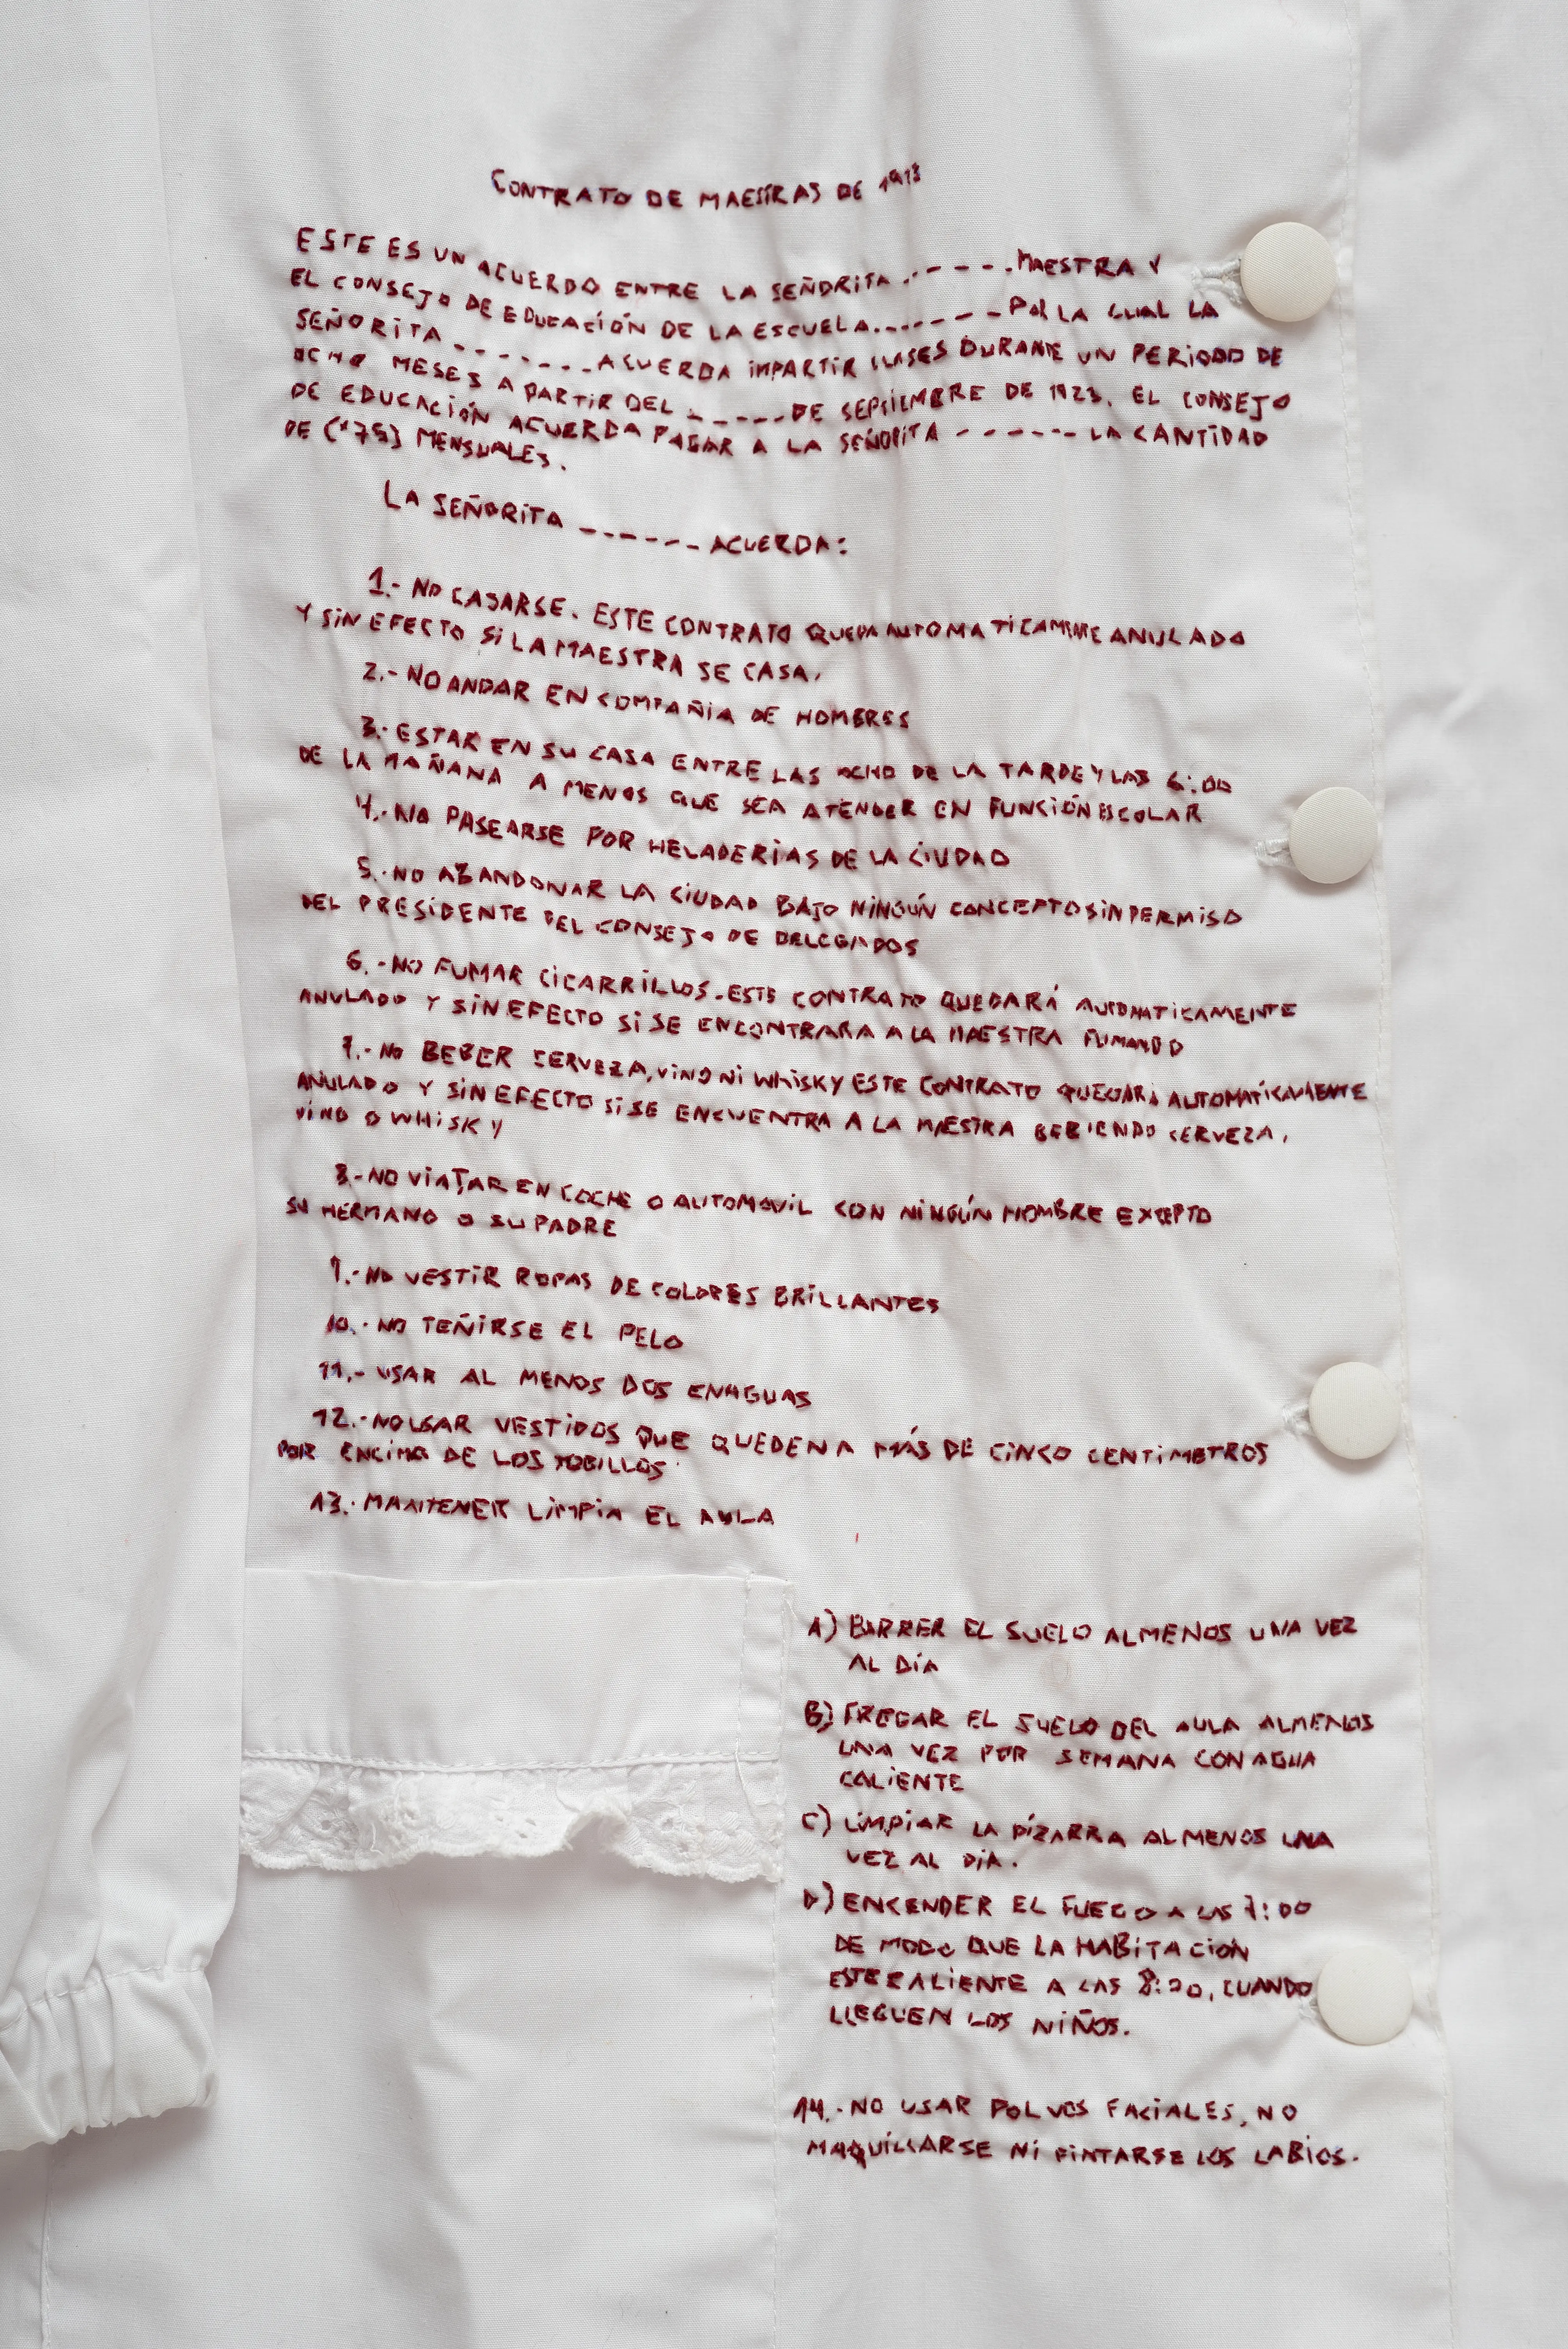 CONTRATO DE MAESTRAS DE 1913
ESTE ES UN ACUERDO ENTRE LA SEÑORITA ------ MAESTRA Y
EL CONSEJO DE EDUCACIÓN DE LA ESCUELA ------- POR LA CUAL LA
SEÑORITA ------- ACUERDA IMPARTIR CLASES DURANTE UN PERIODO DE
OCHO MESES A PARTIR DEL ----- DE SEPTIEMBRE DE 1923. EL CONSEJO
DE EDUCACIÓN ACUERDA PAGAR A LA SEÑORITA ------ LA CANTIDAD
DE (*75) MENSUALES.
LA SEÑORITA ------ ACUERDA:
1.- NO CASARSE. ESTE CONTRATO QUEDA AUTOMATICAMENTE ANULADO
Y SIN EFECTO SI LA MAESTRA SE CASA.
2.- NO ANDAR EN COMPAÑIA DE HOMBRES
3.- ESTAR EN SU CASA ENTRE LAS OCHO DE LA TARDE Y LAS 6:00
DE LA MAÑANA A MENOS QUE SEA ATENDER EN FUNCIÓN ESCOLAR
4.- NO PASEARSE POR HELADERIAS DE LA CIUDAD
5.- NO ABANDONAR LA CIUDAD BAJO NINGÚN CONCEPTO SIN PERMISO
DEL PRESIDENTE DEL CONSEJO DE DELEGADOS
6.- NO FUMAR CICARRILLOS. ESTE CONTRATO QUEDARÁ AUTOMATICAMENTE
ANULADO Y SIN EFECTO SI SE ENCONTRARA A LA MAESTRA FUMANDO
7.- NO BEBER CERVEZA, VINO NI WHISKY ESTE CONTRATO QUEDARÁ AUTOMATÍCAMENTE
ANULADO Y SIN EFECTO SI SE ENCUENTRA A LA MAESTRA BEBIENDO CERVEZA,
VINO O WHISKY
8.- NO VIAJAR EN COCHE O AUTOMOVIL CON NINGÚN HOMBRE EXCEPTO
SU HERMANO O SU PADRE
9.- NO VESTIR ROPAS DE COLORES BRILLANTES
10.- NO TEÑIRSE EL PELO
11.- USAR AL MENOS DOS ENAGUAS
12.- NO USAR VESTIDOS QUE QUEDEN A MÁS DE CINCO CENTIMETROS
POR ENCIMA DE LOS TOBILLOS
13.- MANTENER LIMPIA EL AULA
A) BARRER EL SUELO AL MENOS UNA VEZ
AL DÍA
B) FREGAR EL SUELO DEL AULA AL MENOS
UNA VEZ POR SEMANA CON AGUA
CALIENTE
C) LIMPIAR LA PIZARRA AL MENOS UNA
VEZ AL DÍA.
D) ENCENDER EL FUEGO A LAS 7:00
DE MODO QUE LA HABITACIÓN
ESTE CALIENTE A LAS 8:00, CUANDO
LLEGUEN LOS NIÑOS.
14.- NO USAR POLVOS FACIALES, NO
MAQUILLARSE NI PINTARSE LOS LABIOS.